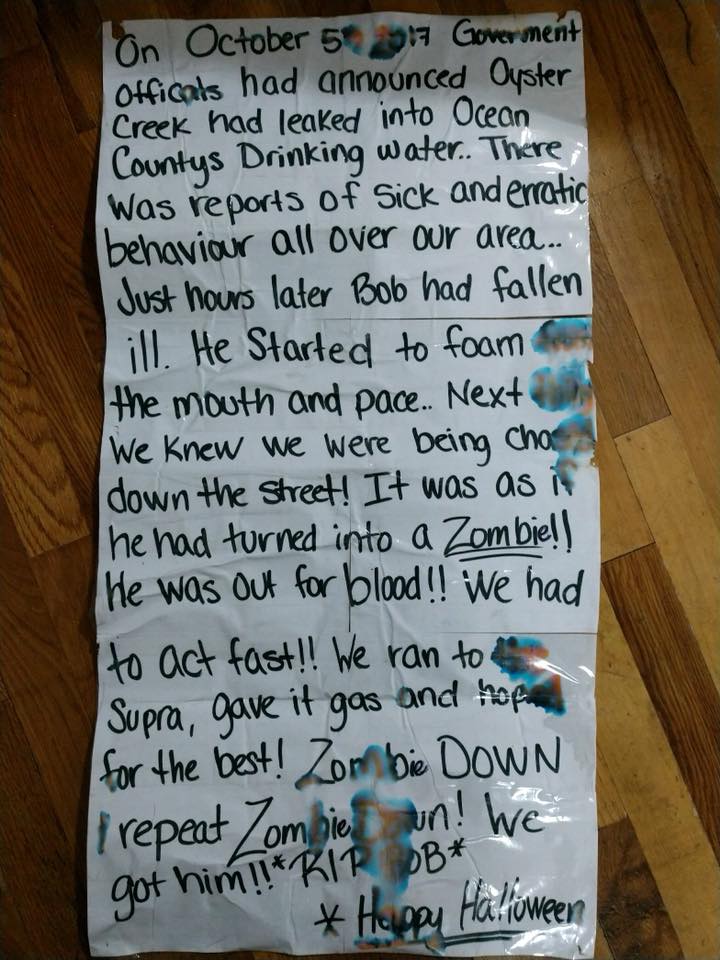 On October 5 2017 Goverment
Officals had announced Oyster
Creek had leaked into Ocean
Countys Drinking water.. There
was reports of Sick and erratic
behaviour all over our area...
Just hours later Bob had fallen
ill. He Started to foam
the mouth and pace.. Next
We knew we were being
down the street! It was as if
he had turned into a Zombie!!
He was out for blood!! We had
to act fast!! We ran to
Supra, gave it gas and
for the best! Zombie DOWN
I repeat Zombie Down! We
got him!! *RIP BOB*
* Happy Halloween